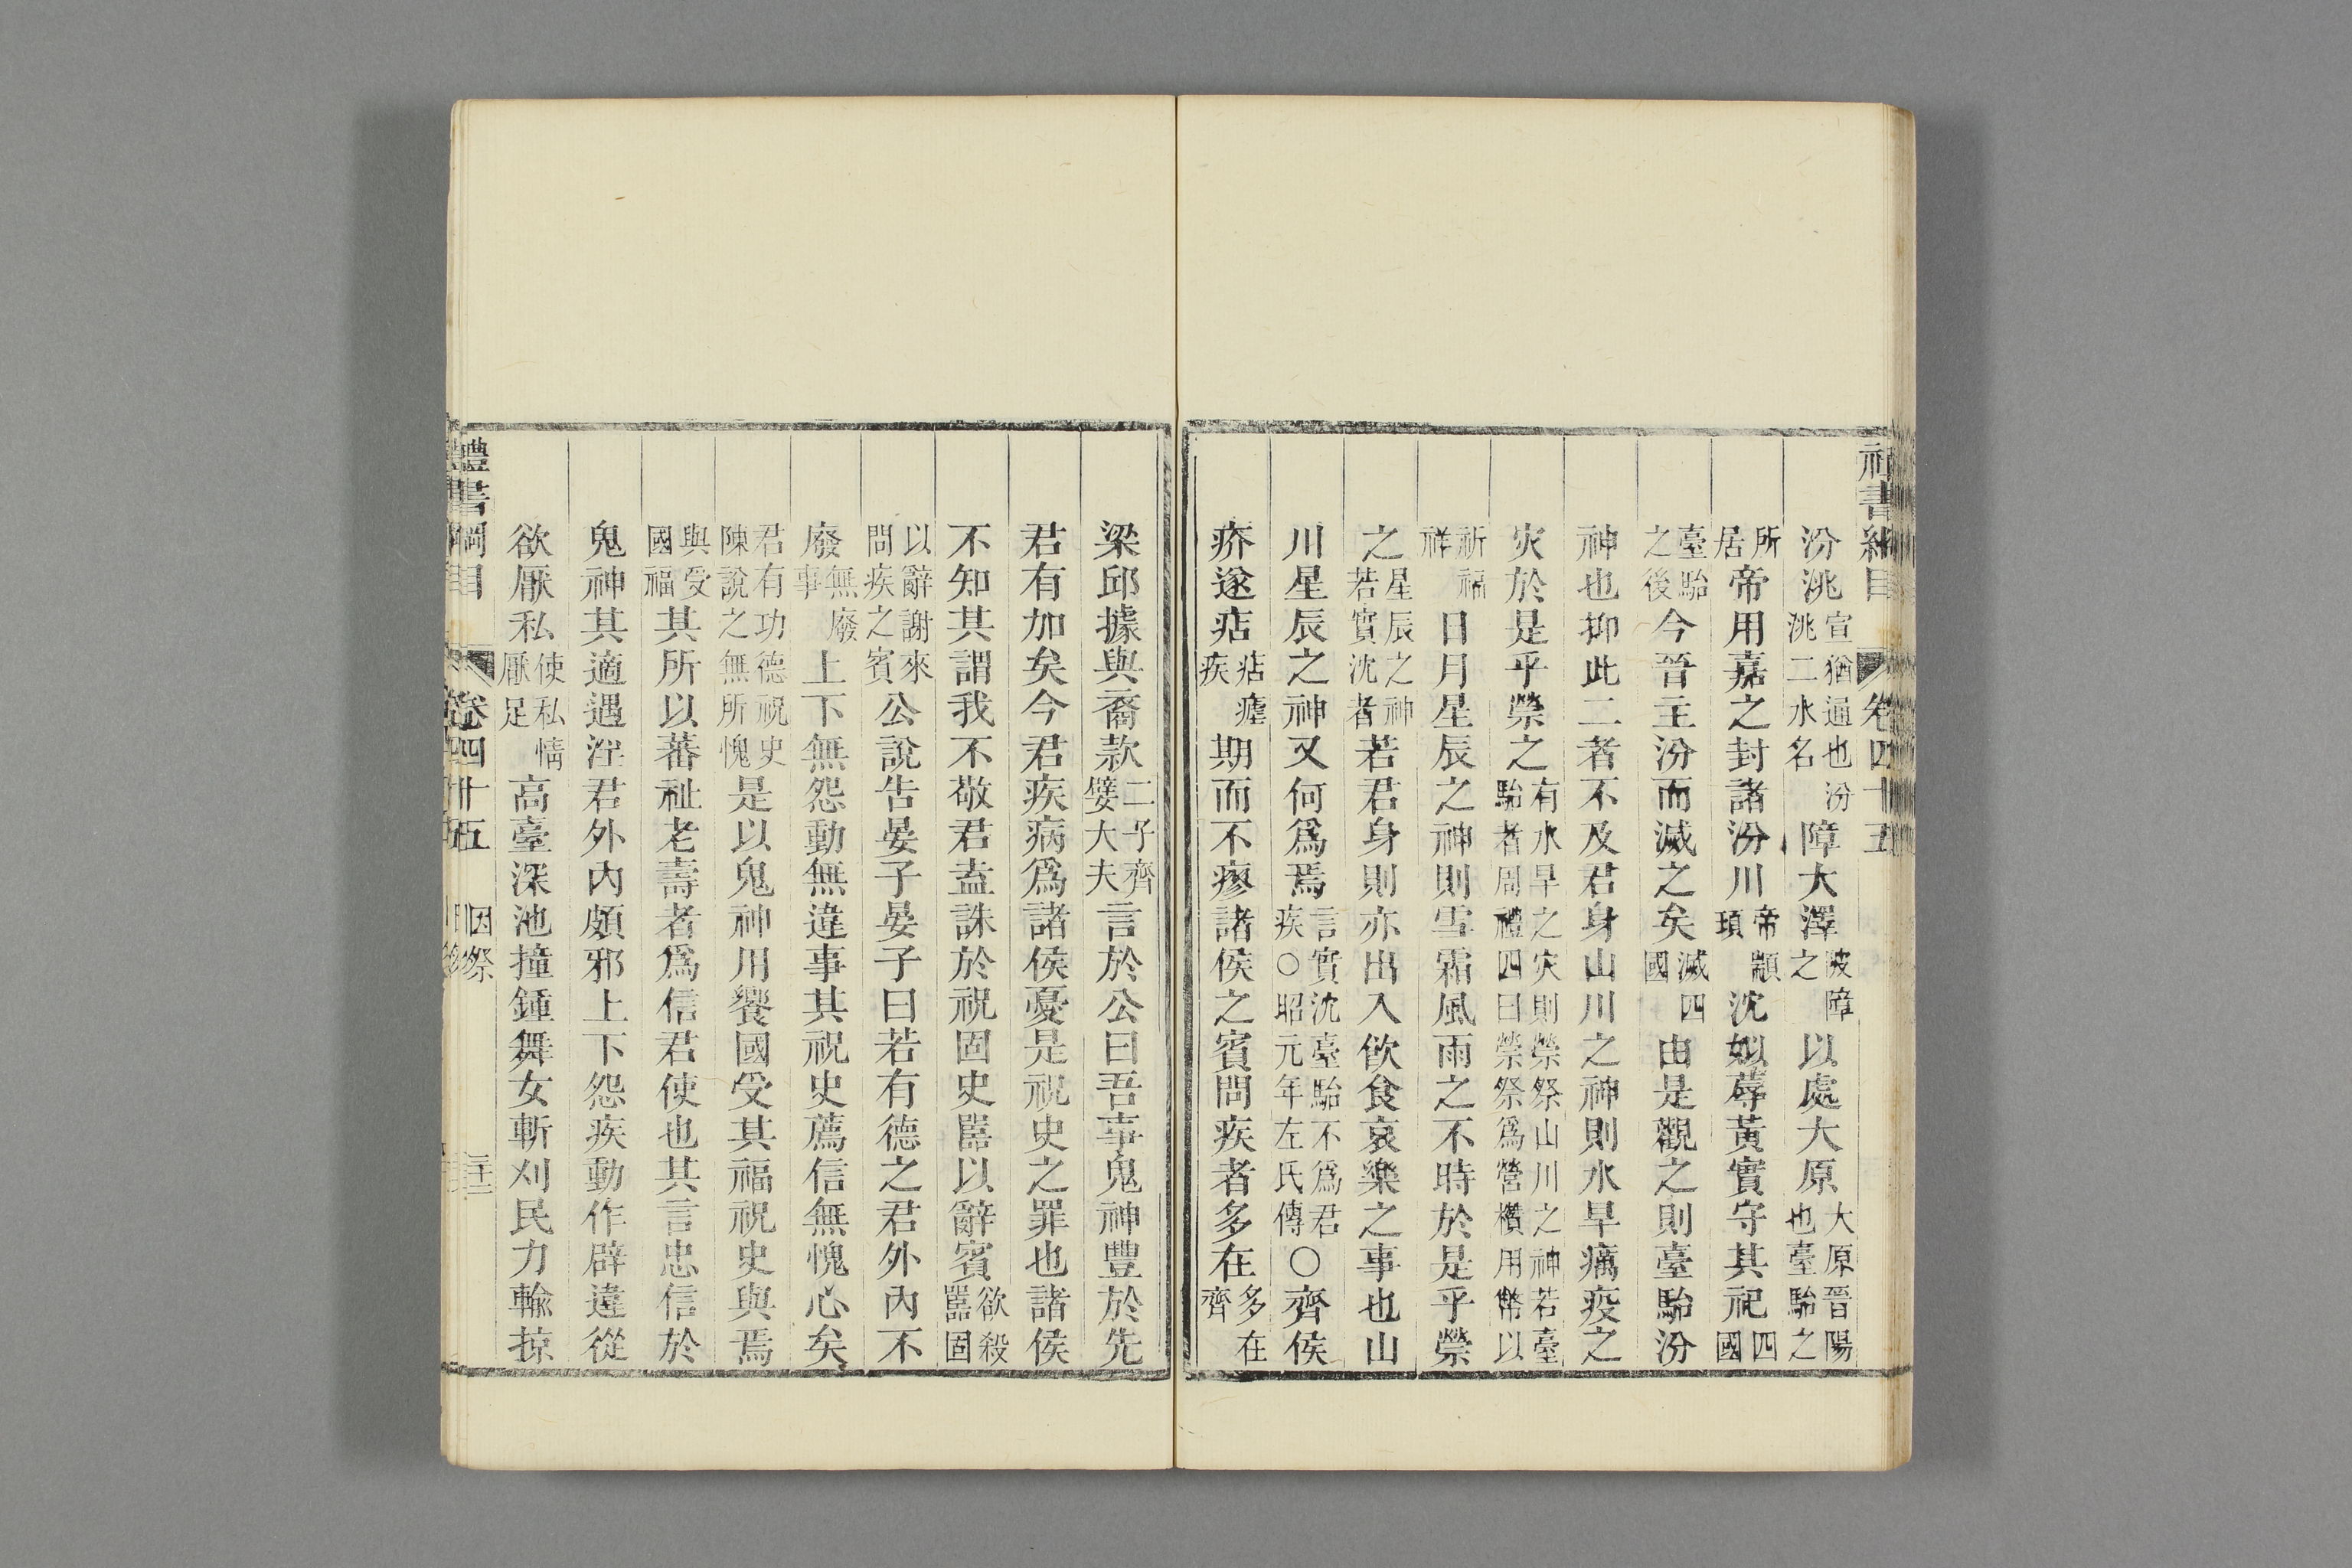 汾洮宣猶通也汾洮二水名障大澤陂障之以處大原大原晉陽也臺駘之
所居帝用嘉之封諸汾川帝顓頊沈姒蓐黃實守其祀四國
臺駘之後今晉主汾而滅之矣滅四國由是觀之則臺駘汾
神也抑此二者不及君身山川之神則水旱癘疫之
灾於是乎禜之有水旱之灾則禜祭山川之神若臺駘者周禮四曰禜祭爲營欑用幣以
祈福祥日月星辰之神則雪霜風雨之不時於是乎禜
之星辰之神若實沈者若君身則亦出入飲食哀樂之事也山
川星辰之神又何爲焉言實沈臺駘不爲君疾○昭元年左氏傳○齊侯
疥遂痁痁瘧疾期而不瘳諸侯之賓問疾者多在多在齊
梁邱據與裔款二子齊嬖大夫言於公曰吾事鬼神豐於先
君有加矣今君疾病爲諸侯憂是祝史之罪也諸侯
不知其謂我不敬君盍誅於祝固史嚚以辭賓欲殺嚚固
以辭謝來問疾之賓公說告晏子晏子曰若有德之君外內不
廢無廢事上下無怨動無違事其祝史薦信無愧心矣
君有功德祝史陳說之無所愧是以鬼神用饗國受其福祝史與焉
與受國福其所以蕃祉老壽者爲信君使也其言忠信於
鬼神其適遇淫君外內頗邪上下怨疾動作辟違從
欲厭私使私情厭足高臺深池撞鍾舞女斬刈民力輸掠
禮書綱目 卷四十五 因祭